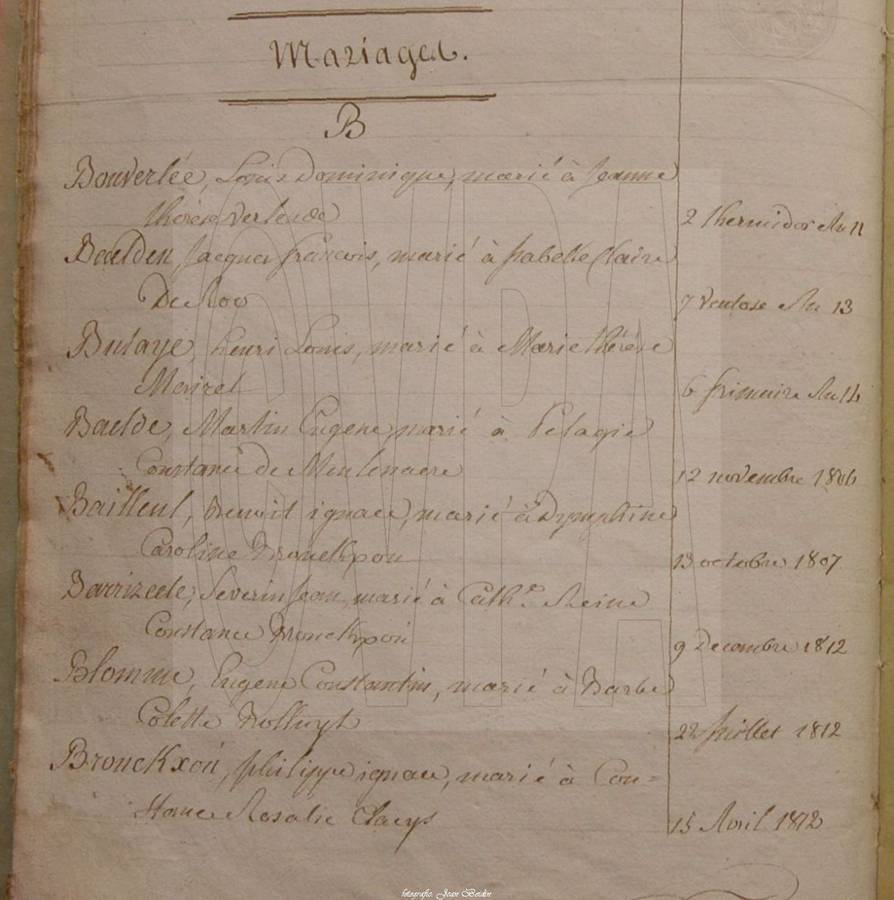 Mariages.
B
Bouverlée, Louis Dominique, marié à Jeanne
thérèse Verlende 2 thermidor An 11
Beulden, Jacques françois, marié à Isabelle Claire
De Roo 7 Ventose An 13
Butaye, henri Louis, marié à Marie thérèse
6 frimaire An 14
Baelde, Martin Eugene, marié à Pélagie
Constance de Meulenaere 12 novembre 1806
Bailleul, Benoit ignace, marié à Dymphine
Caroline Bronckxon 13 octobre 1807
Barrizeele, Severin Jean, marié à Cath.e Reine
Constance Bronckxon 9 Decembre 1812
Blomme, Eugene Constantin, marié à Barbe
Colette 22 Juillet 1812
Bronckxon, philippe ignace, marié à Con=
stance Rosalie Claeys 15 Avril 1812
GVPA
fotografie: Jean Beidin